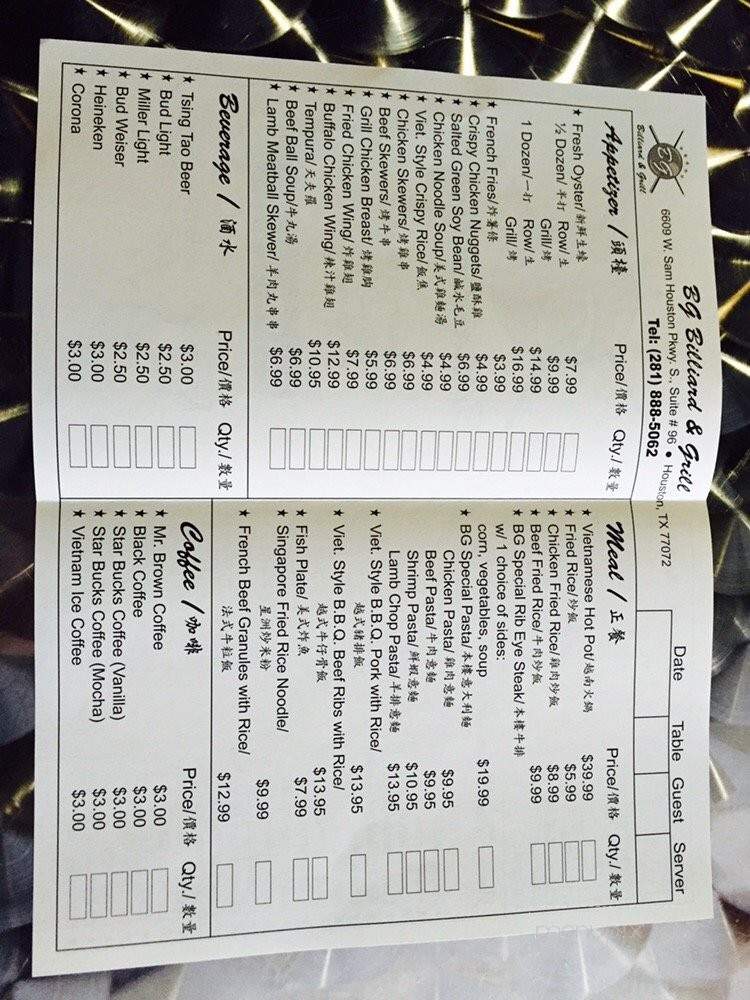 BG
Billiard & Grill
BG Billiard & Grill
6609 W. Sam Houston Pkwy. S., Suite # 96 • Houston, TX 77072
Tel: (281) 888-5062
Date Table Guest Server
Appetizer / 頭檯 Price/價格 Qty./ 數量
★ Fresh Oyster/新鮮生蠔
½ Dozen/半打 Row/生 $7.99
Grill/烤 $9.99
1 Dozen/一打 Row/生 $14.99
Grill/烤 $16.99
★ French Fries/炸薯條 $3.99
★ Crispy Chicken Nuggets/鹽酥雞 $4.99
★ Salted Green Soy Bean/鹹水毛豆 $6.99
★ Chicken Noodle Soup/美式雞麵湯 $4.99
★ Viet. Style Crispy Rice/飯焦 $4.99
★ Chicken Skewers/烤雞串 $6.99
★ Beef Skewers/烤牛串 $6.99
★ Grill Chicken Breast/烤雞胸 $5.99
★ Fried Chicken Wing/炸雞翅 $7.99
★ Buffalo Chicken Wing/辣汁雞翅 $12.99
★ Tempura/天夫羅 $10.95
★ Beef Ball Soup/牛丸湯 $6.99
★ Lamb Meatball Skewer/羊肉丸串串 $6.99
Beverage / 酒水 Price/價格 Qty./ 數量
★ Tsing Tao Beer $3.00
★ Bud Light $2.50
★ Miller Light $2.50
★ Bud Weiser $2.50
★ Heineken $3.00
★ Corona $3.00
Meal / 正餐 Price/價格 Qty./ 數量
★ Vietnamese Hot Pot/越南火鍋 $39.99
★ Fried Rice/炒飯 $5.99
★ Chicken Fried Rice/雞肉炒飯 $8.99
★ Beef Fried Rice/牛肉炒飯 $9.99
★ BG Special Rib Eye Steak/本樓牛排
w/ 1 choice of sides:
corn, vegetables, soup $19.99
★ BG Special Pasta/本樓意大利麵
Chicken Pasta/雞肉意麵 $9.95
Beef Pasta/牛肉意麵 $9.95
Shrimp Pasta/鮮蝦意麵 $10.95
Lamb Chop Pasta/羊排意麵 $13.95
★ Viet. Style B.B.Q. Pork with Rice/
越式豬排飯 $13.95
★ Viet. Style B.B.Q. Beef Ribs with Rice/
越式牛仔骨飯 $13.95
★ Fish Plate/美式炸魚 $7.99
★ Singapore Fried Rice Noodle/
星洲炒米粉 $9.99
★ French Beef Granules with Rice/
法式牛粒飯 $12.99
Coffee / 咖啡 Price/價格 Qty./ 數量
★ Mr. Brown Coffee $3.00
★ Black Coffee $3.00
★ Star Bucks Coffee (Vanilla) $3.00
★ Star Bucks Coffee (Mocha) $3.00
★ Vietnam Ice Coffee $3.00